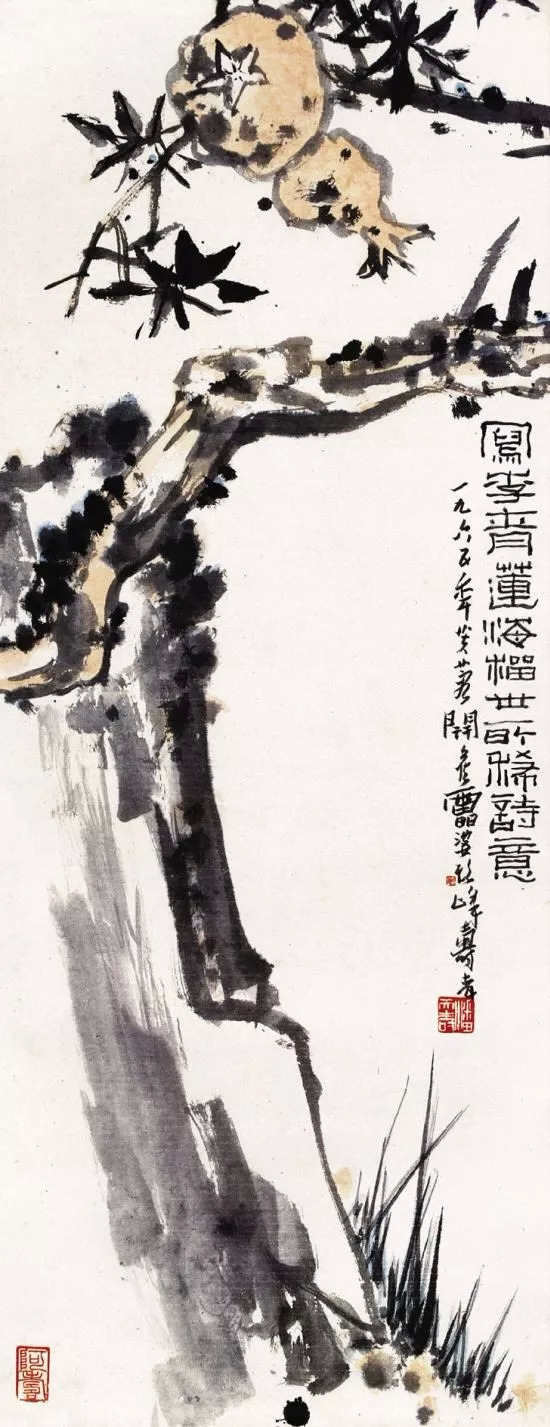 寫李青蓮海榴世所稀詩意
一九六五年開雷婆頭峰壽者
潘天壽
阿壽